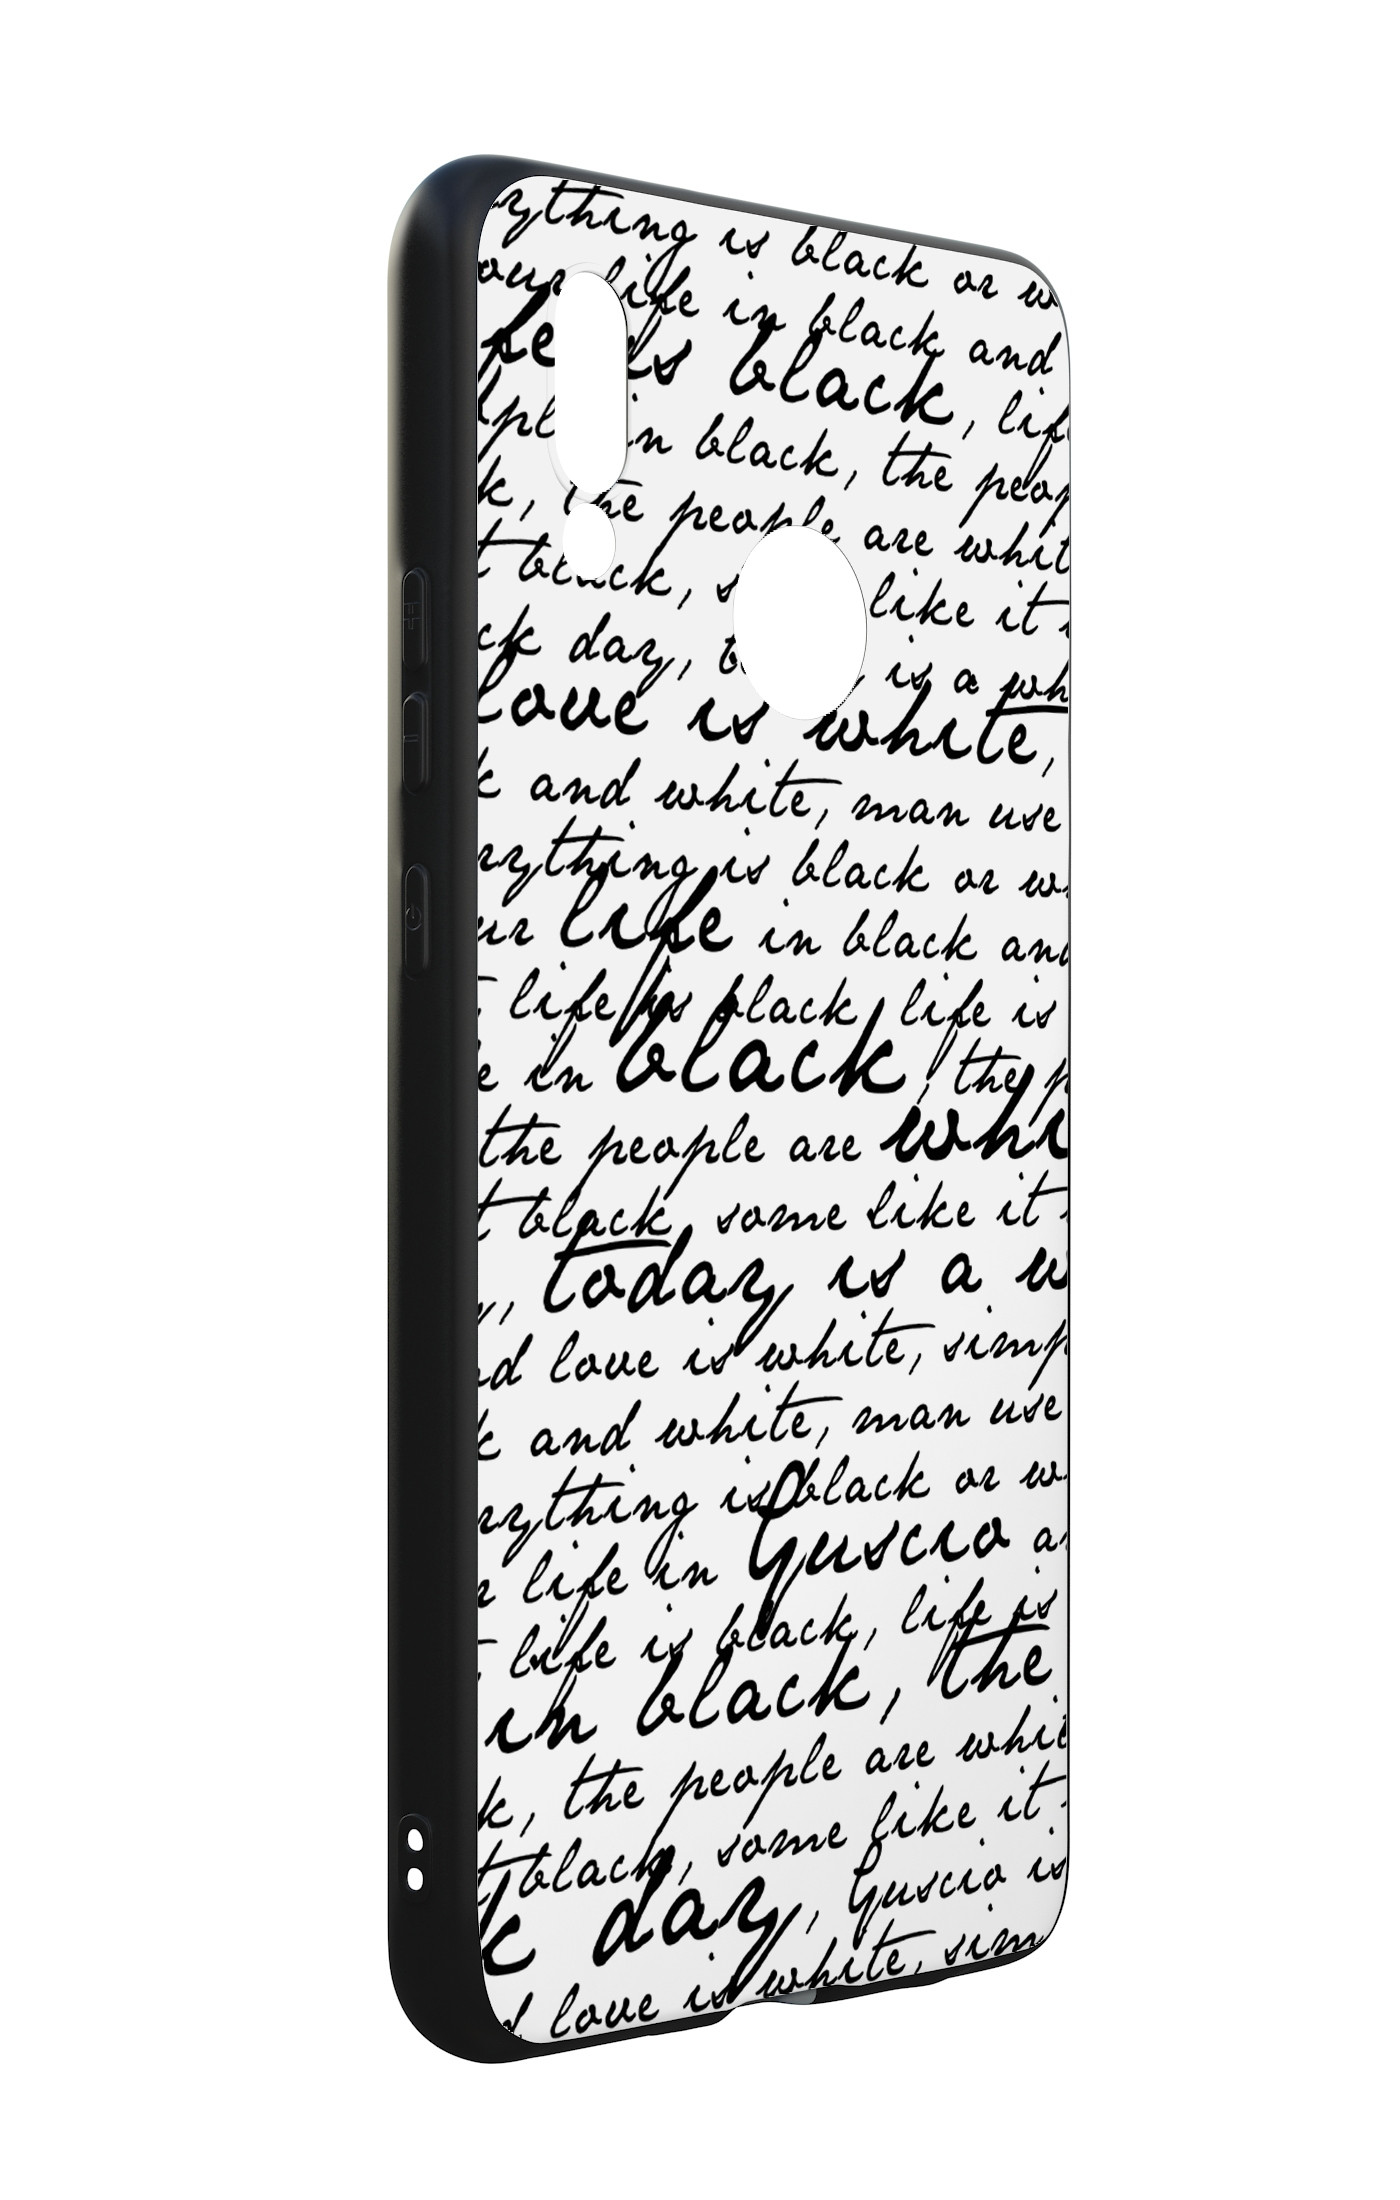 rything is black or w
our life in black and
fe is black, life
mple in black, the peop
k, the people are whit
t black, s like it
ck day, is a wh
love is white,
k and white, man use
rything is black or wh
ur life in black and
t life is black, life is
e in black, the p
the people are whi
t black, some like it
y, today is a w
nd love is white, simp
k and white, man use
rything is black or w
r life in Guscio an
t life is black, life is
in black, the
k, the people are whit
t black, some like it
k day, Guscio is
d love is white, sim